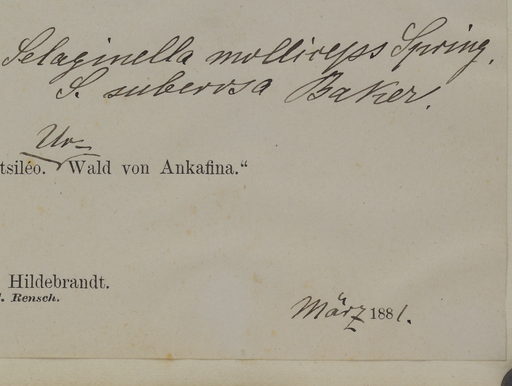 Selaginella molliceps Spring.
S. suberosa Baker.
Ur-
tsiléo. Wald von Ankafina.“
Hildebrandt.
. Rensch.
März 1881.